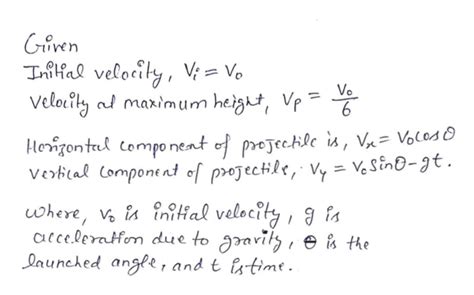 Given
Initial velocity, Vi = V₀
Velocity at maximum height, Vp = V₀/6
Horizontal component of projectile is, Vx = V₀cosθ
Vertical component of projectile, Vy = V₀Sinθ-gt.
Where, V₀ is initial velocity, g is
acceleration due to gravity, θ is the
launched angle, and t is time.